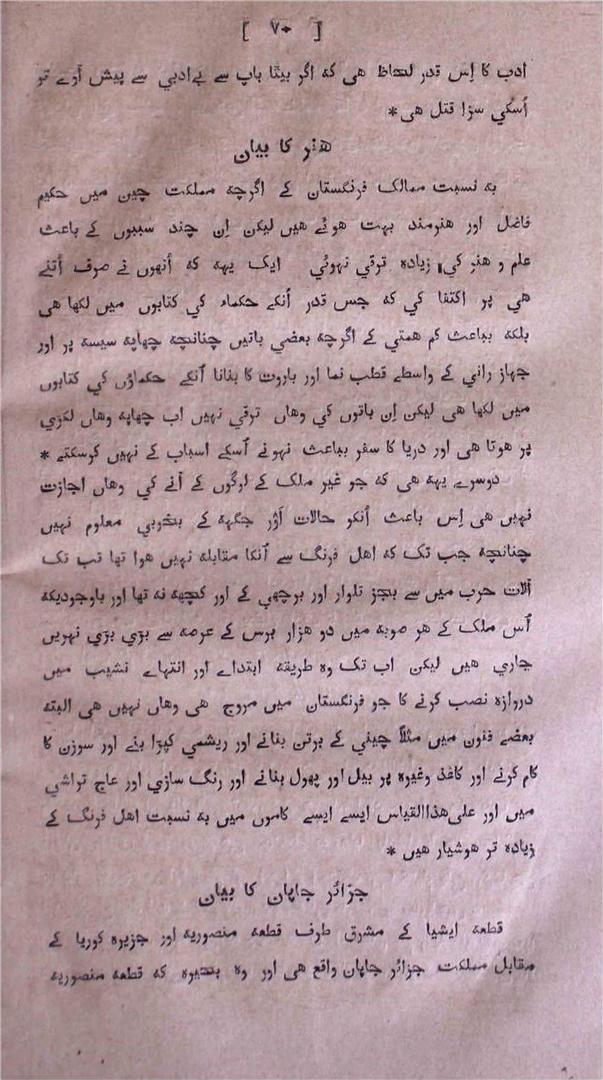 [ ۷۰ ]
ادب کا اِس قدر لحاظ هی که اگر بیٹا باپ سے بےادبي سے پیش آوے تو
اُسکي سزا قتل هی *
هنر کا بیان
به نسبت ممالک فرنگستان کے اگرچه مملکت چین میں حکیم
فاضل اور هنرمند بہت هوئے هیں لیکن اِن چند سببوں کے باعث
علم و هنر کي زیاده ترقي نہوئي ایک یہه که اُنھوں نے صرف اُتنے
هی پر اکتفا کي که جس قدر اُنکے حکماء کي کتابوں میں لکھا هی
بلکه بباعث کم همتي کے اگرچه بعضي باتیں چنانچه چھاپه سیسه پر اور
جہاز راني کے واسطے قطب نما اور باروت کا بنانا اُنکے حکماؤں کي کتابوں
میں لکھا هی لیکن اِن باتوں کي وهاں ترقي نہیں اب چھاپه وهاں لکڑي
پر هوتا هی اور دریا کا سفر بباعث نہونے اُسکے اسباب کے نہیں کرسکتے *
دوسرے یہه هی که جو غیر ملک کے لوگوں کے آنے کي وهاں اجازت
نہیں هی اِس باعث اُنکو حالات اَوْر جگہه کے بخوبي معلوم نہیں
چنانچه جب تک که اهل فرنگ سے اُنکا مقابله نہیں هوا تھا تب تک
آلات حرب میں سے بجز تلوار اور برچھي کے اور کچھه نه تھا اور باوجودیکه
اُس ملک کے هر صوبه میں دو هزار برس کے عرصه سے بڑي بڑي نہریں
جاري هیں لیکن اب تک وه طریقه ابتداے اور انتہاے نشیب میں
دروازه نصب کرنے کا جو فرنگستان میں مروج هی وهاں نہیں هی البته
بعضے فنون میں مثلاً چیني کے برتن بنانے اور ریشمي کپڑا بنے اور سوزن کا
کام کرنے اور کاغذ وغیره پر بیل اور پھول بنانے اور رنگ سازي اور عاج تراشي
میں اور علی‌هذاالقیاس ایسے ایسے کاموں میں به نسبت اهل فرنگ کے
زیاده تر هوشیار هیں *
جزائر جاپان کا بیان
قطعه ایشیا کے مشرق طرف قطعه منصوریه اور جزیره کوریا کے
مقابل مملکت جزائر جاپان واقع هی اور وه بحیره که قطعه منصوریه